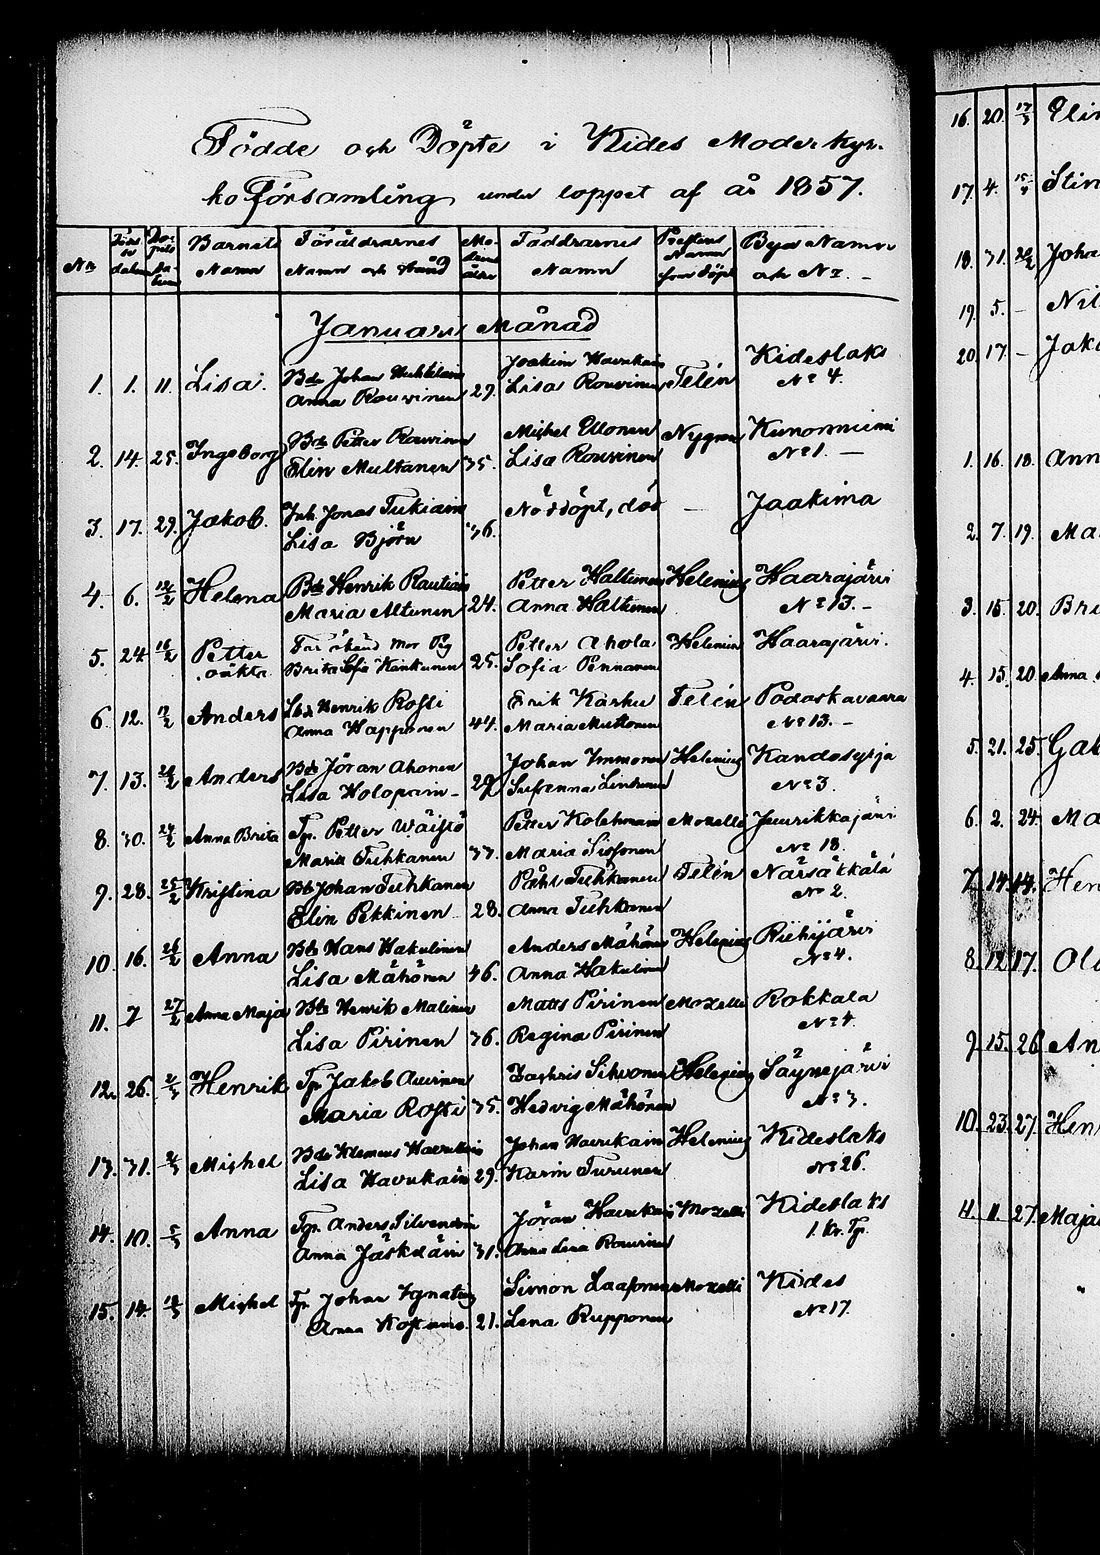 Födde och Döpte i Kides Moderkyr-
ko Församling under loppet af år 1857.
No Födelse datum Döpelse datum Barnets Namn Föräldrarnes Namn och stånd Modrens ålder Faddrarnes Namn Prestens Namn som döpt Byns Namn och No. -
Januari Månad
1. 1. 11. Lisa. Bde Johan 29. Joakim Havukain Telén Kideslaks
Anna Rouvinen Lisa Rouvinen No 4.
2. 14. 25. Ingeborg Bde Petter Rouvinen 35. Michel Ullonen Nygren Kunonniemi
Elin Multanen Lisa Rouvinen No 1. -
3. 17. 29. Jakob. Inh Jonas Tukiain 36. Nöddöpt, död - Jaakima
Lisa Björn
4. 6. 12/2 Helena Bde Henrik Rautiain 24. Petter Haltunen Helenius Haarajärvi
Maria Altunen Anna Haltunen No 13. -
5. 24 16/2 Petter Far okänd Mor Pig 25. Petter Ahola Helenius Haarajärvi.
oäkta Brita Sofia Kankunen Sofia Pennanen
6. 12. 17/2 Anders Lbd Henrik Rossi 44. Erik Karhu Telén Podoskavaara
Anna Happonen Maria Muttonen No 13. -
7. 13. 24/2 Anders Bde Jöran Ahonen 29 Johan Immonen Helenius Kandosyrja
Lisa Holopain- Susanna No 3.
8. 30. 24/2 Anna Brita Tp. Petter Wäistö 33. Petter Kolehmain Mozelli Juurikkajärvi
Maria Tuhkanen Maria Sissonen No 18.
9. 28. 25/2 Kristina Bde Johan Tuhkanen 28. Påhl Tuhkanen Telén Närsäkkälä
Elin Pekkinen Anna Tuhkanen No 2.
10. 16. 26/2 Anna Bde Hans Hakulinen 46. Anders Mähönen Helenius Riihijärvi
Lisa Mähönen Anna Hakulinen No 4.
11. 7 27/2 Anna Maja Bde Henrik Malinen 36. Matts Pirinen Mozelli Rokkala
Lisa Pirinen Regina Pirinen No 4.
12. 26. 2/3 Henrik Tp Jakob Auvinen 35. Zachris Sihvonen Helenius Säynejärvi
Maria Rossi Hedvig Mähönen No 3.
13. 31. 2/3 Michel Bde Klemens Havukain 29. Johan Havukain Helenius Kideslaks
Lisa Havukain Karin Turunen No 26.
14. 10. 5/3 Anna Tp. Anders Silvendoin 31. Jöran Havukain Mozelli Kideslaks
Anna Jäskeläin Anna Lena Rouvinen 1. Kr. Tp.
15. 14. 18/3 Michel Tp. Johan Ignatius 21. Simon Laasonen Mozelli Kides
Anna Lena Rupponen No 17.
16. 20. 17/3 Elin
17. 4. 15/4 Stin
18. 31. Joha
19. 5. - Nil
20. 17. - Jako
1. 16. 18. Ann
2. 7. 19. Ma
3. 15. 20. Bri
4. 15. 20 Anna
5. 21. 25. Gab
6. 2. 24. Ma
7. 14. 14. Hen
8. 12 17. Ol
9. 15. 26 An
10. 23. 27. Hen
11. 11. 27. Maja